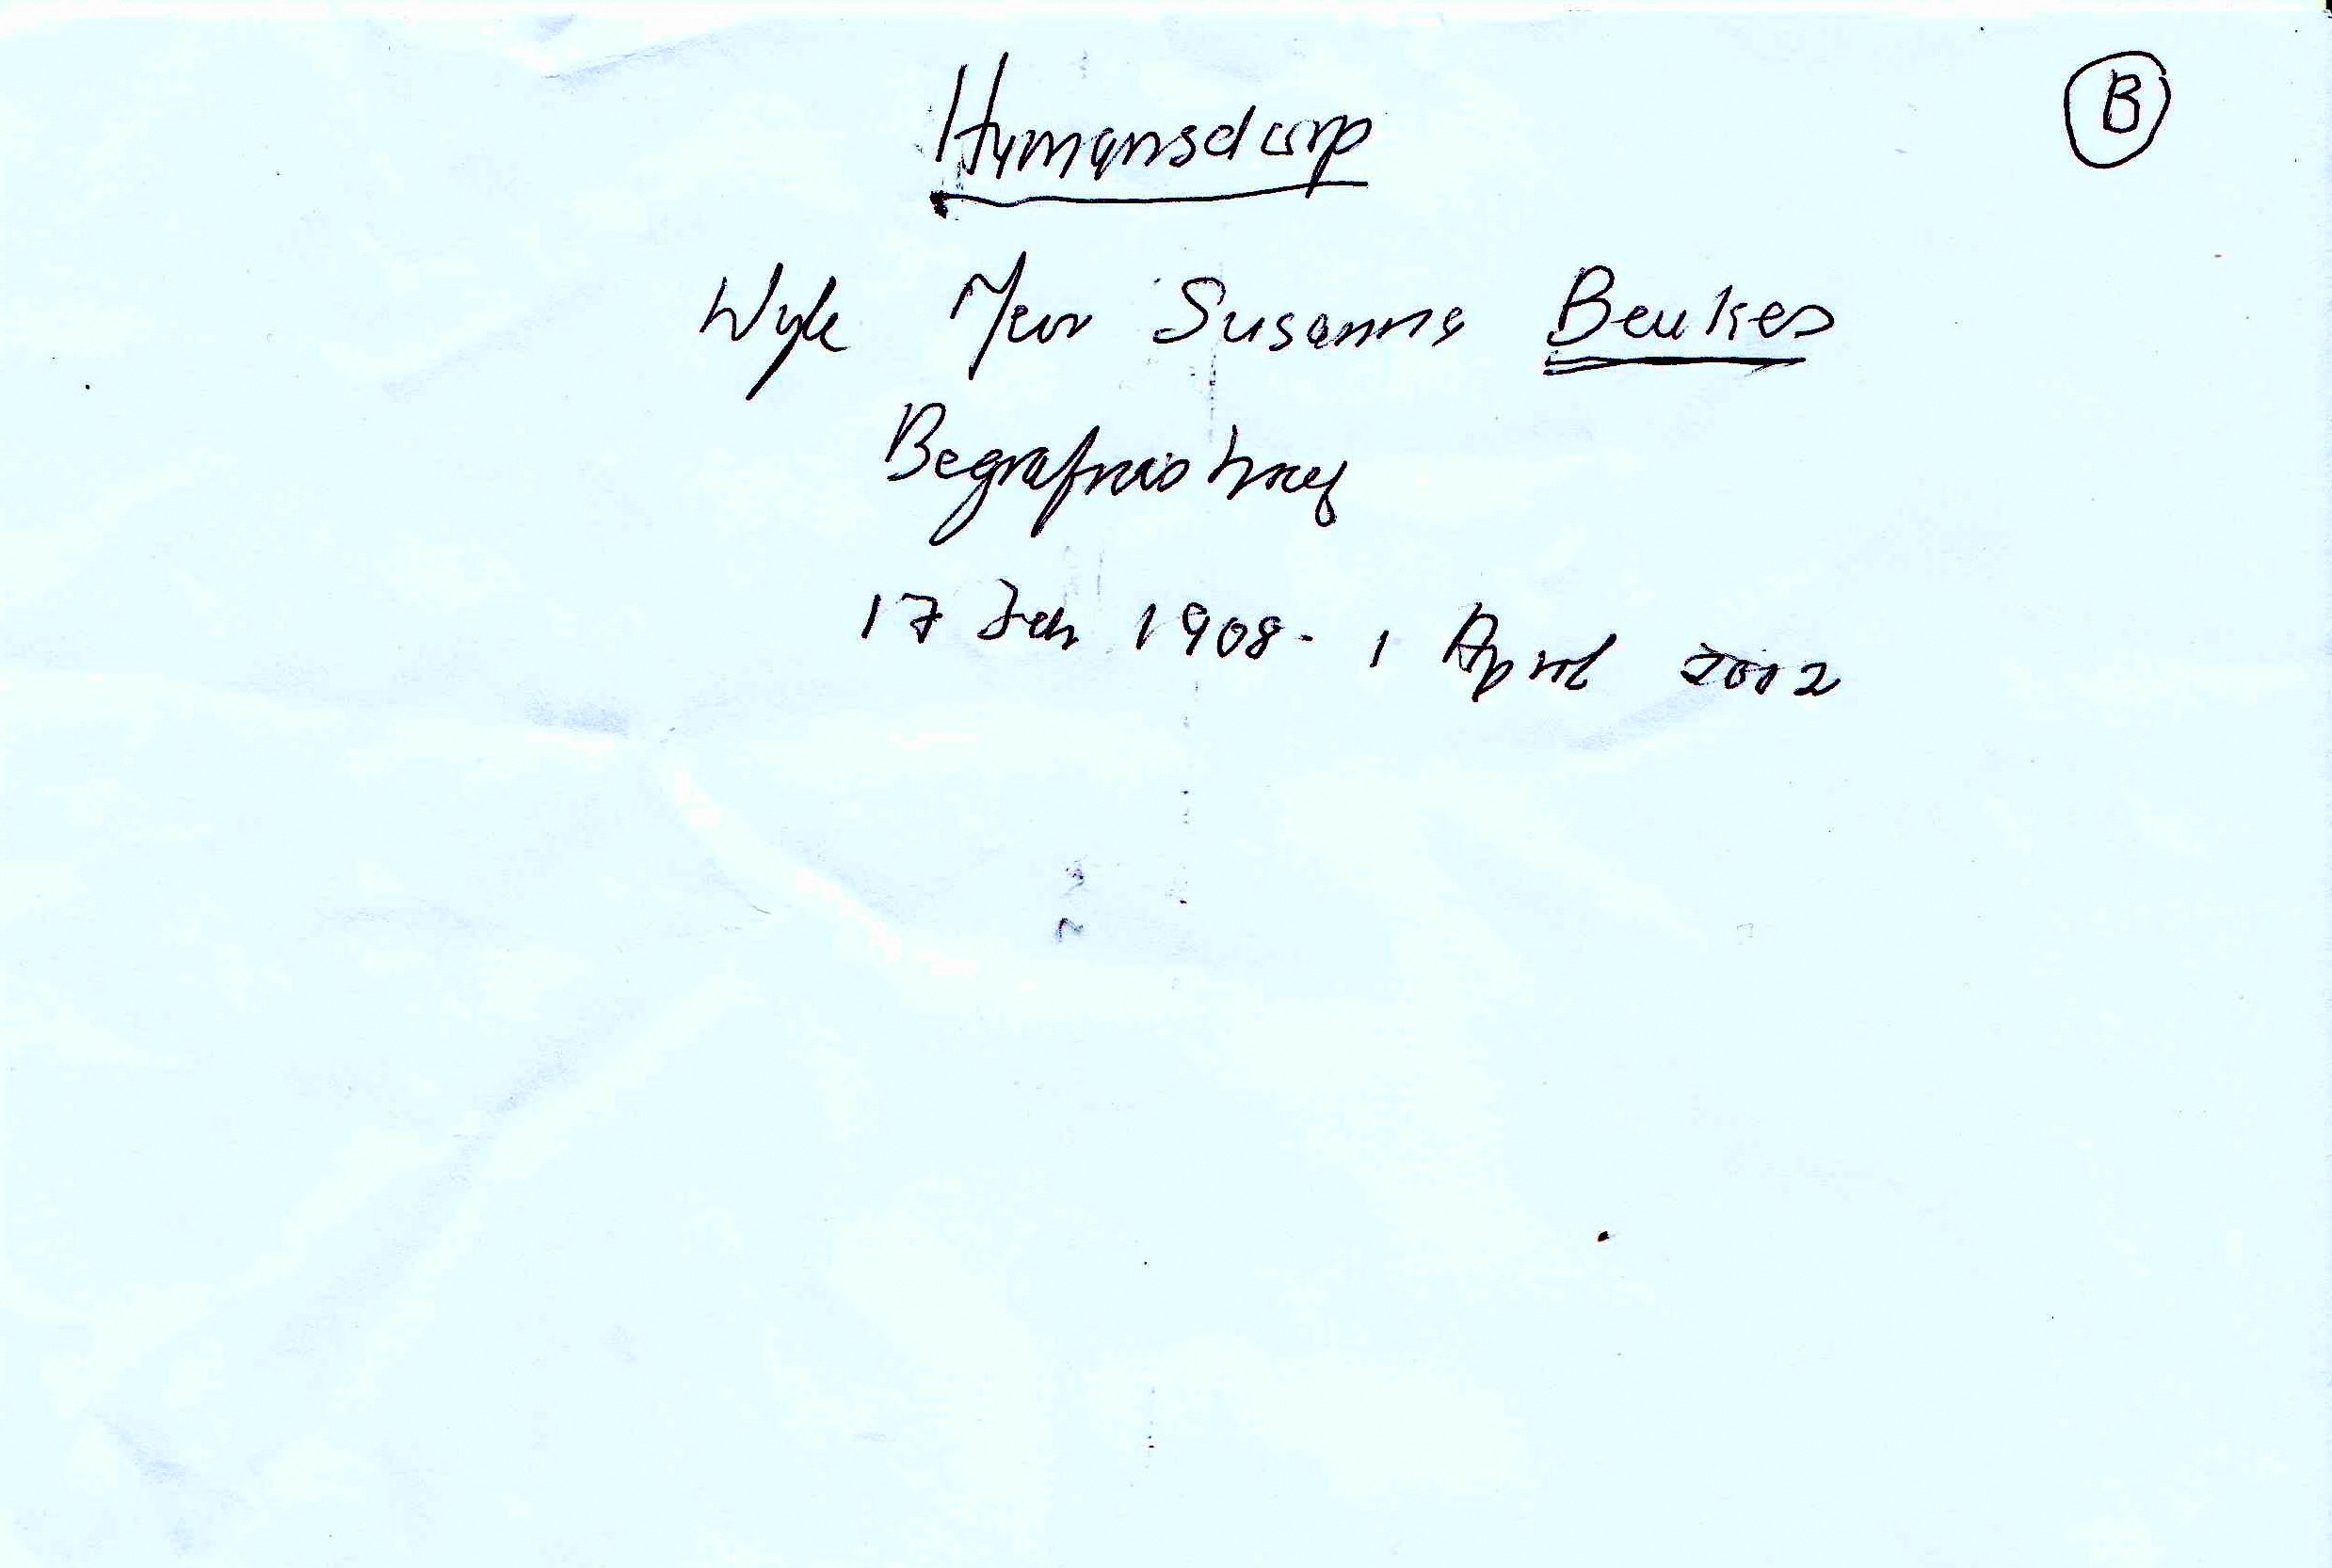 Humansdorp
B
Wyle Mevr Susanna Beukes
Begrafnisbrief
17 Feb 1908 - 1 April 2002